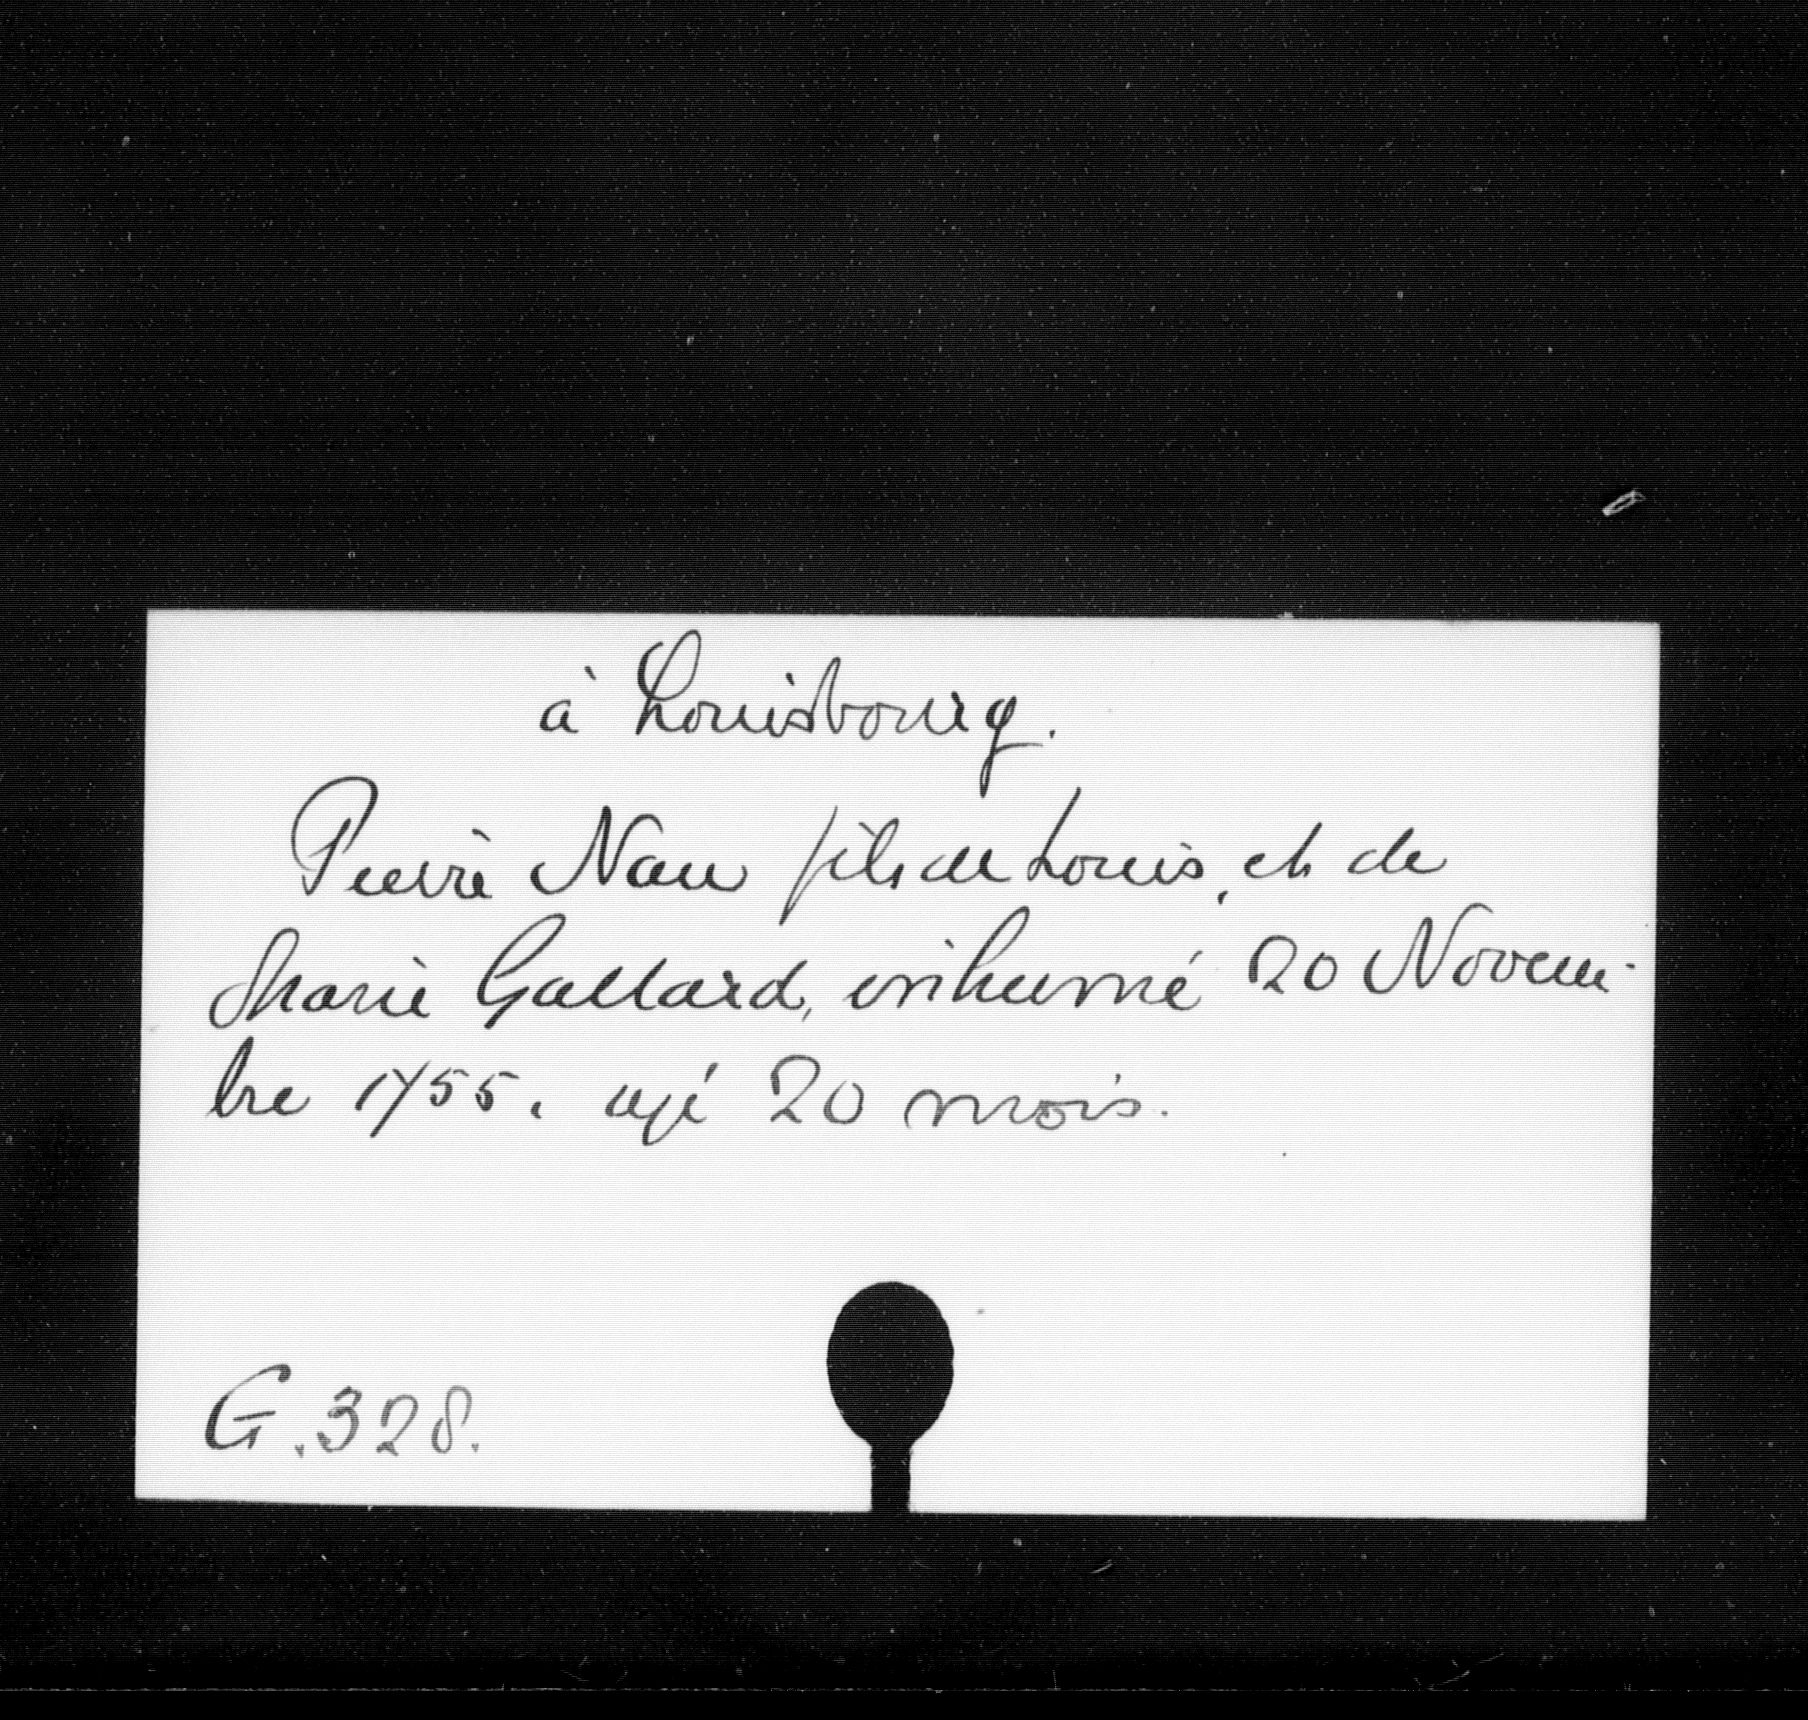 à Louisbourg.
Pierre Nau fils de Louis, et de
Marie Gallard, inhumé 20 Novem-
bre 1755. agé 20 mois.
G.328.